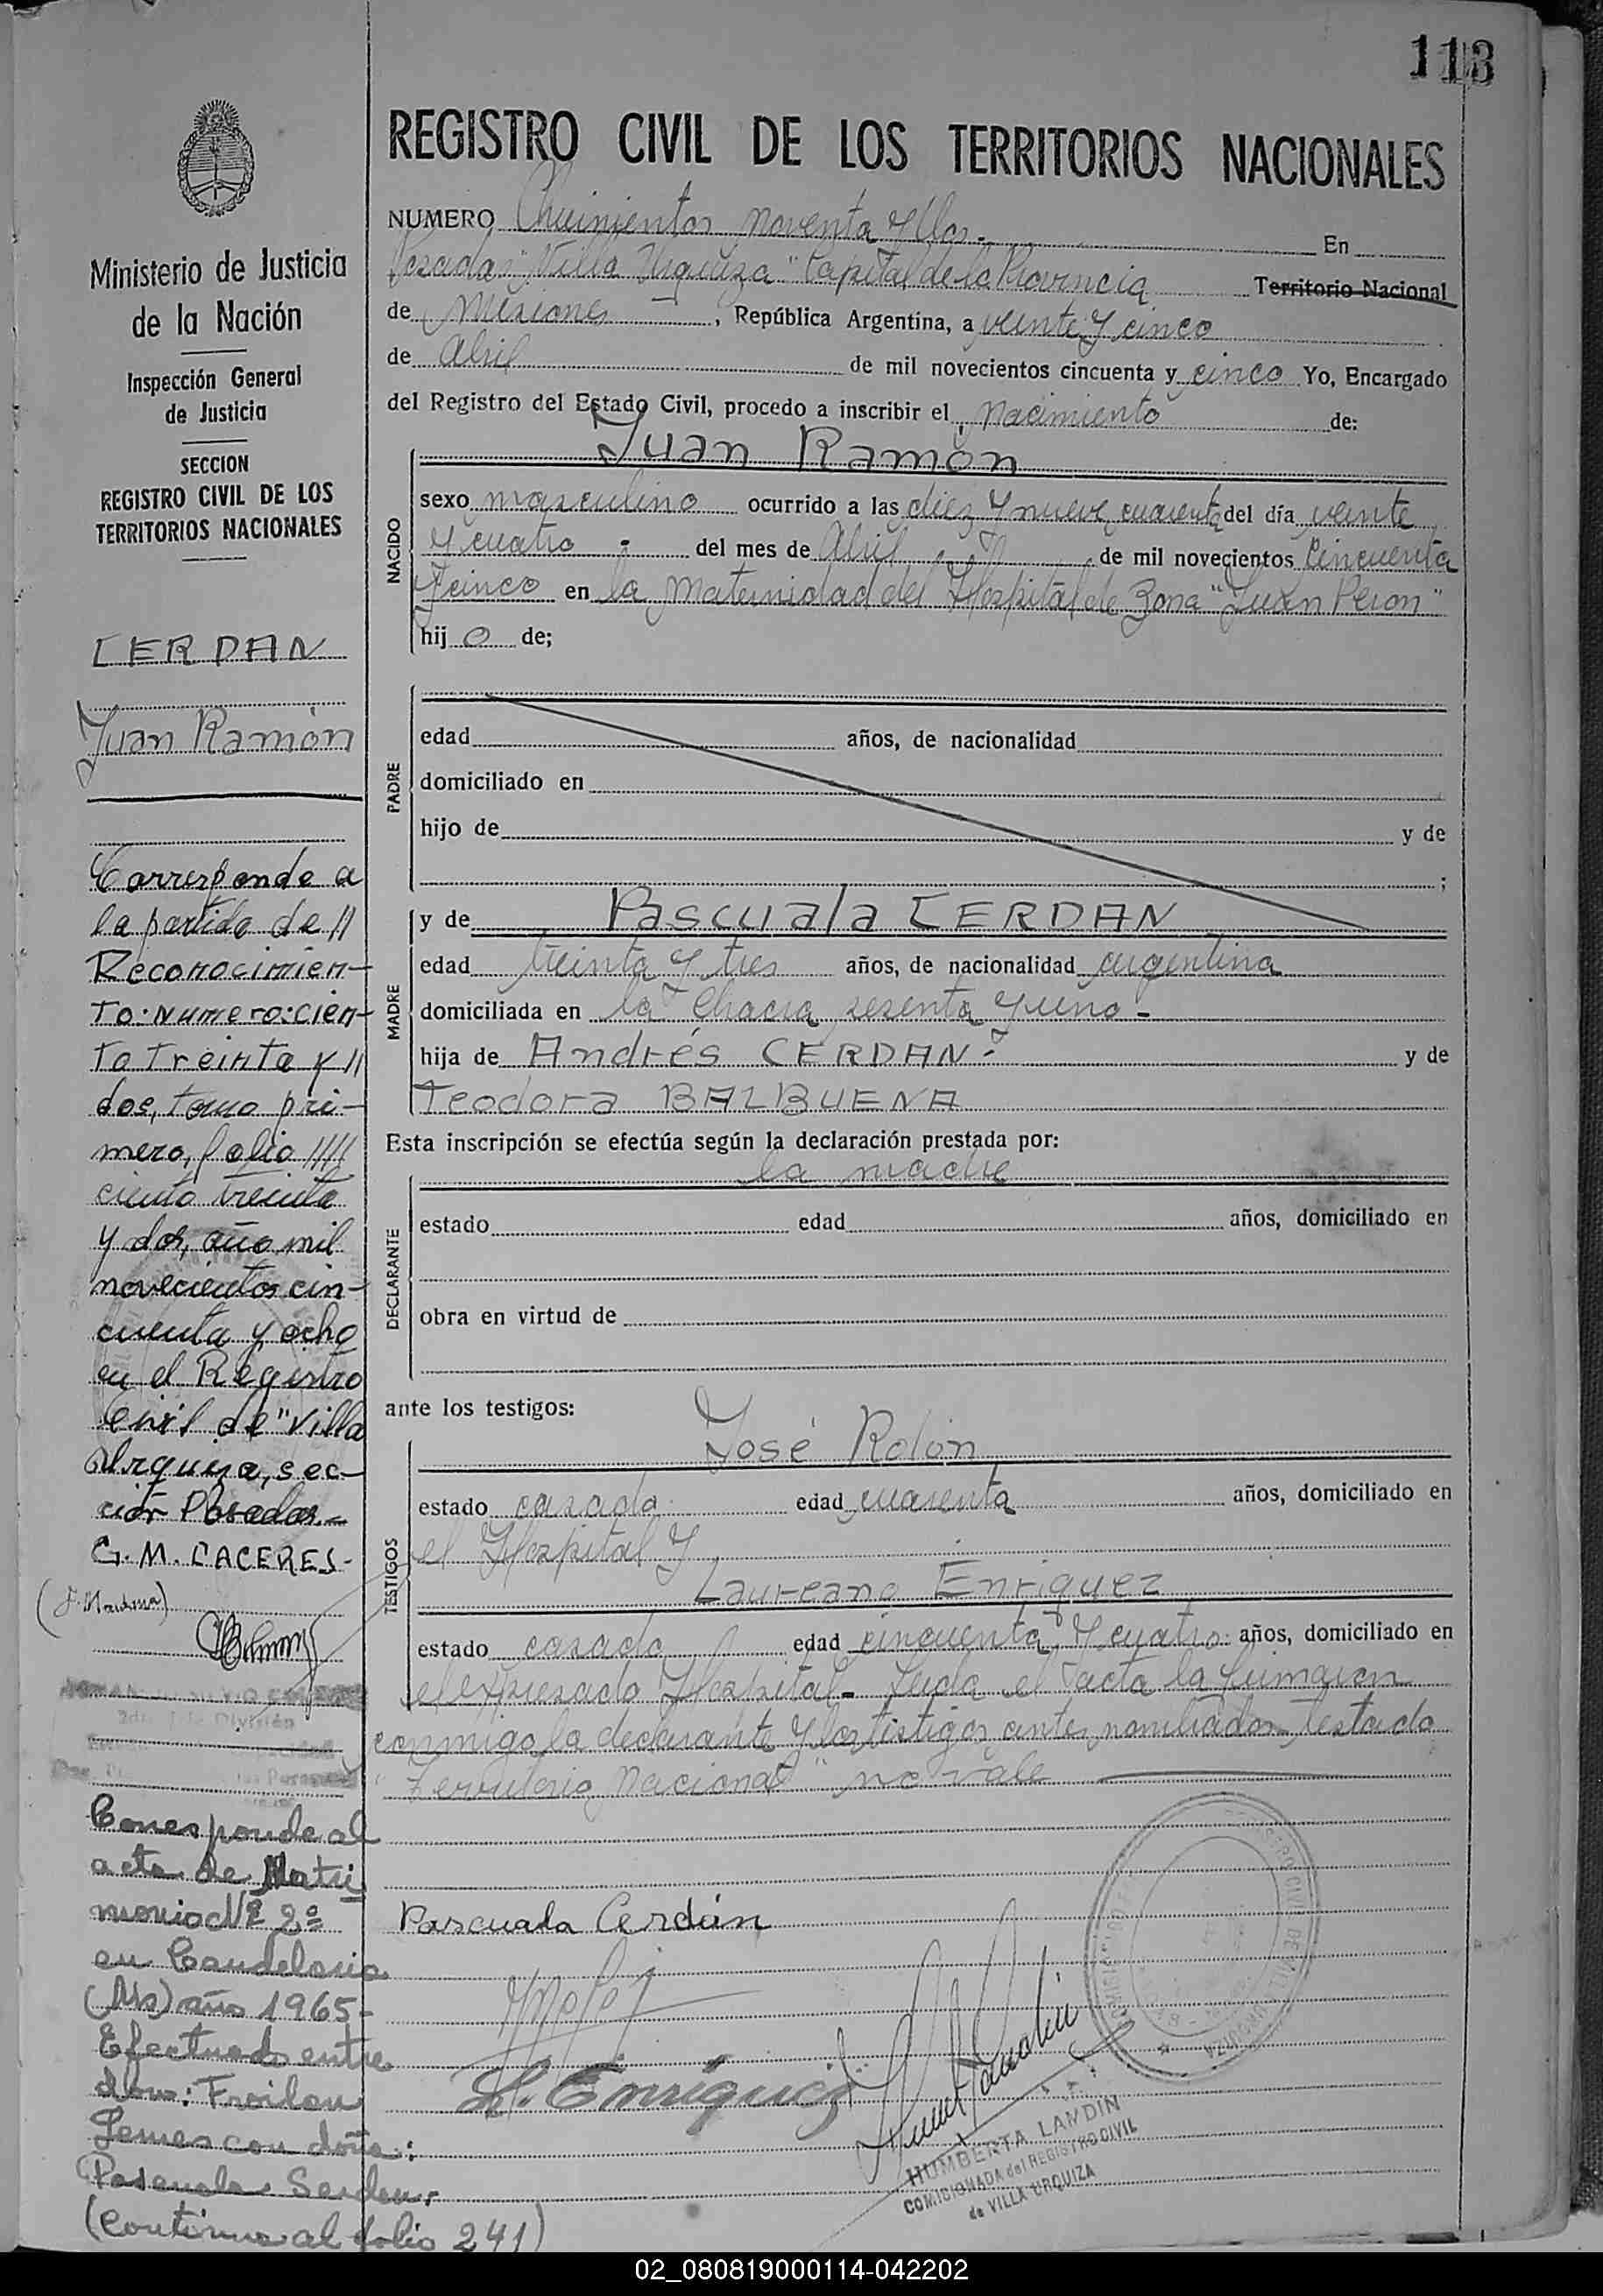 113
REGISTRO CIVIL DE LOS TERRITORIOS NACIONALES
Ministerio de Justicia
de la Nación
Inspección General
de Justicia
SECCION
REGISTRO CIVIL DE LOS
TERRITORIOS NACIONALES
CERDAN
Juan Ramón
Corresponde a
la partida de //
Reconocimien-
to: Numero: cien-
to treinta y //
dos, tomo pri-
mero, folio ////
ciento treinta
y dos, año mil
novecientos cin-
cuenta y ocho
en el Registro
Civil de "Villa
Urquiza, sec-
ción Posadas.-
G. M. CACERES-
Corresponde al
acta de Matri
monio Nº 2º
en Candelaria
(Ms) año 1965-
Efectuado entre
don: Froilan
con doña:
Pascuala
(continua al folio 241)
NUMERO Quinientos noventa y dos.- En
Posadas "Villa Urquiza" Capital de la Provincia Territorio Nacional
de Misiones, República Argentina, a veinte y cinco
de Abril de mil novecientos cincuenta y cinco Yo, Encargado
del Registro del Estado Civil, procedo a inscribir el nacimiento de:
Juan Ramón
NACIDO
sexo masculino ocurrido a las diez y nueve cuarenta del día veinte
y cuatro - del mes de Abril de mil novecientos cincuenta
y cinco en la Maternidad del Hospital de Zona "Juan Peron"
hijo de;
PADRE
edad años, de nacionalidad
domiciliado en
hijo de y de
;
MADRE
y de Pascuala CERDAN
edad treinta y tres años, de nacionalidad argentina
domiciliada en la Chacra sesenta y uno -
hija de Andrés CERDAN.- y de
Teodora BALBUENA
Esta inscripción se efectúa según la declaración prestada por:
la madre
DECLARANTE
estado edad años, domiciliado en
obra en virtud de
ante los testigos:
TESTIGOS
José Rolón
estado casado edad cuarenta años, domiciliado en
el Hospital y
Laureano Enriquez
estado casado edad cincuenta y cuatro años, domiciliado en
el expresado Hospital - Leida el acta la firmaron
conmigo la declarante y los testigos antes nombrados - testado
"Territorio Nacional" no vale
Pascuala Cerdán
L. Enriquez
HUMBERTA LANDIN
COMICIONADA del REGISTRO CIVIL
de VILLA URQUIZA
02_080819000114-042202